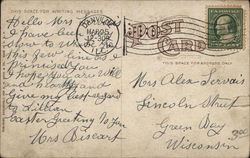 THIS SPACE FOR WRITING MESSAGES
Hello Mrs
I have been
slow to
this few lines as I
promised you
I hope you are well
and
give my best regard
to Lillian
Easter Greeting to you
Mrs
DANVILLE
MAR 25
POST
CARD
THIS SPACE FOR ADDRESS ONLY
Mrs Alex Servais
Lincoln Street
Green Bay
Wisconsin